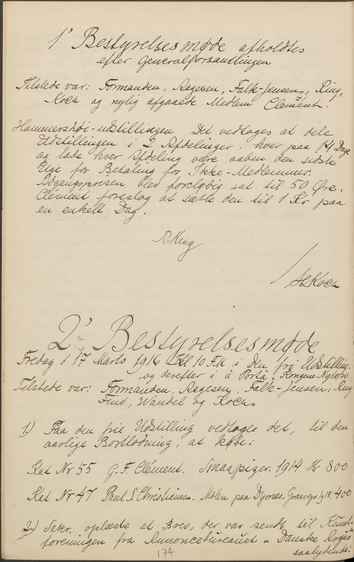 1' Bestyrelsesmøde afholdtes
efter Generalforsamlingen
Tilstede var: Formanden, Aagesen, Falk-Jensen, Ring,
Koch og nylig afgaaede Medlem Clément.
Hammershøi-udstillingen. Det vedtages at dele
Udstillingen i 2 Afdelinger. hver paa 14 Dage
og lade hver Afdeling være aaben den sidste
Uge for Betaling for Ikke-Medlemmer.
Adgangsprisen blev foreløbig sat til 50 Øre.
Clément foreslog at sætte den til 1 Kr. paa
en enkelt Dag.
Ring
Koch
2' Bestyrelsesmøde
Fredag d. 17 Marts 1916 Kl 10 F.M. i Den frie Udstilling
og derefter i à Porta, Kongens Nytorv.
Tilstede var: Formanden, Aagesen, Falk-Jensen, Ring
Wandel og Koch.
1) Paa den frie Udstilling vedtages det, til den
aarlige Bortlodning, at købe:
Kat Nr 55 G.F. Clément. Smaapiger. 1914 Kr 800
Kat Nr 47 Poul S. Christiansen. Molen paa 400
2) Sekr. oplæste et Brev, der var sendt til Kunst-
foreningen fra Annoncebureauet - Danske
174